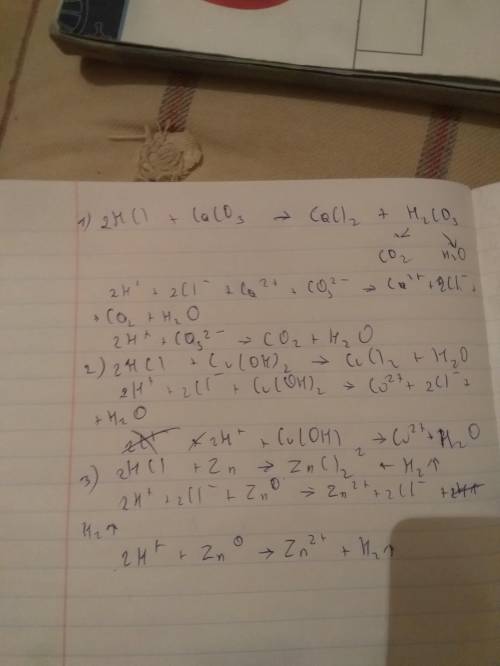 1) 2HCl + CaCO₃ → CaCl₂ + H₂CO₃
CO₂ H₂O
2H⁺ + 2Cl⁻ + Ca²⁺ + CO₃²⁻ → Ca²⁺ + 2Cl⁻
+ CO₂ + H₂O
2H⁺ + CO₃²⁻ → CO₂ + H₂O
2) 2HCl + Cu(OH)₂ → CuCl₂ + H₂O
2H⁺ + 2Cl⁻ + Cu(OH)₂ → Cu²⁺ + 2Cl⁻ +
+ H₂O
2H⁺ + Cu(OH)₂ → Cu²⁺ + H₂O
3) 2HCl + Zn → ZnCl₂ + H₂↑
2H⁺ + 2Cl⁻ + Zn⁰ → Zn²⁺ + 2Cl⁻ +
H₂↑
2H⁺ + Zn⁰ → Zn²⁺ + H₂↑